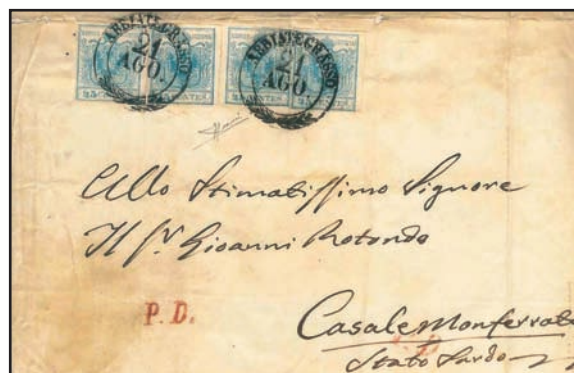 ABBIATEGRASSO
21
AGO.
ABBIATEGRASSO
21
AGO.
Allo Stimatissimo Signore
Il Sr. Gioanni Rotondo
P. D.
Casale Monferrato
Stato Sardo